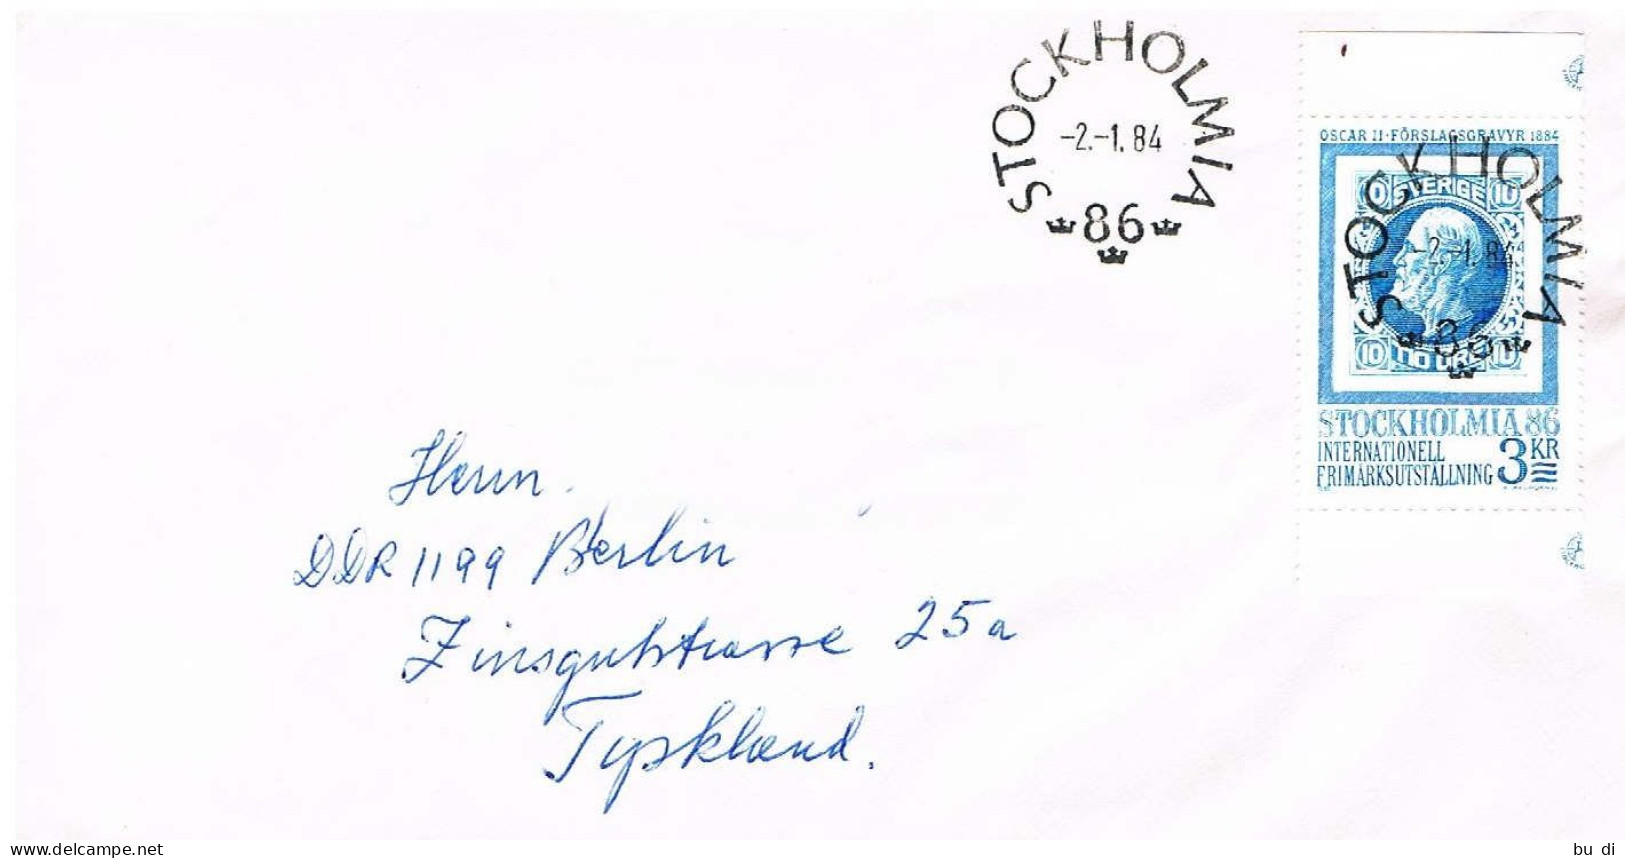 STOCKHOLMIA
-2.-1. 84
86
OSCAR II·FÖRSLAGSGRAVYR 1884
10 SVERIGE 10
STOCKHOLMIA
-2.-1. 84
86
10 TIO ÖRE 10
STOCKHOLMIA 86
INTERNATIONELL
FRIMÄRKSUTSTÄLLNING
3 KR
Herrn
DDR 1199 Berlin
Zinsgutstrasse 25a
Tyskland.
www.delcampe.net
bu di